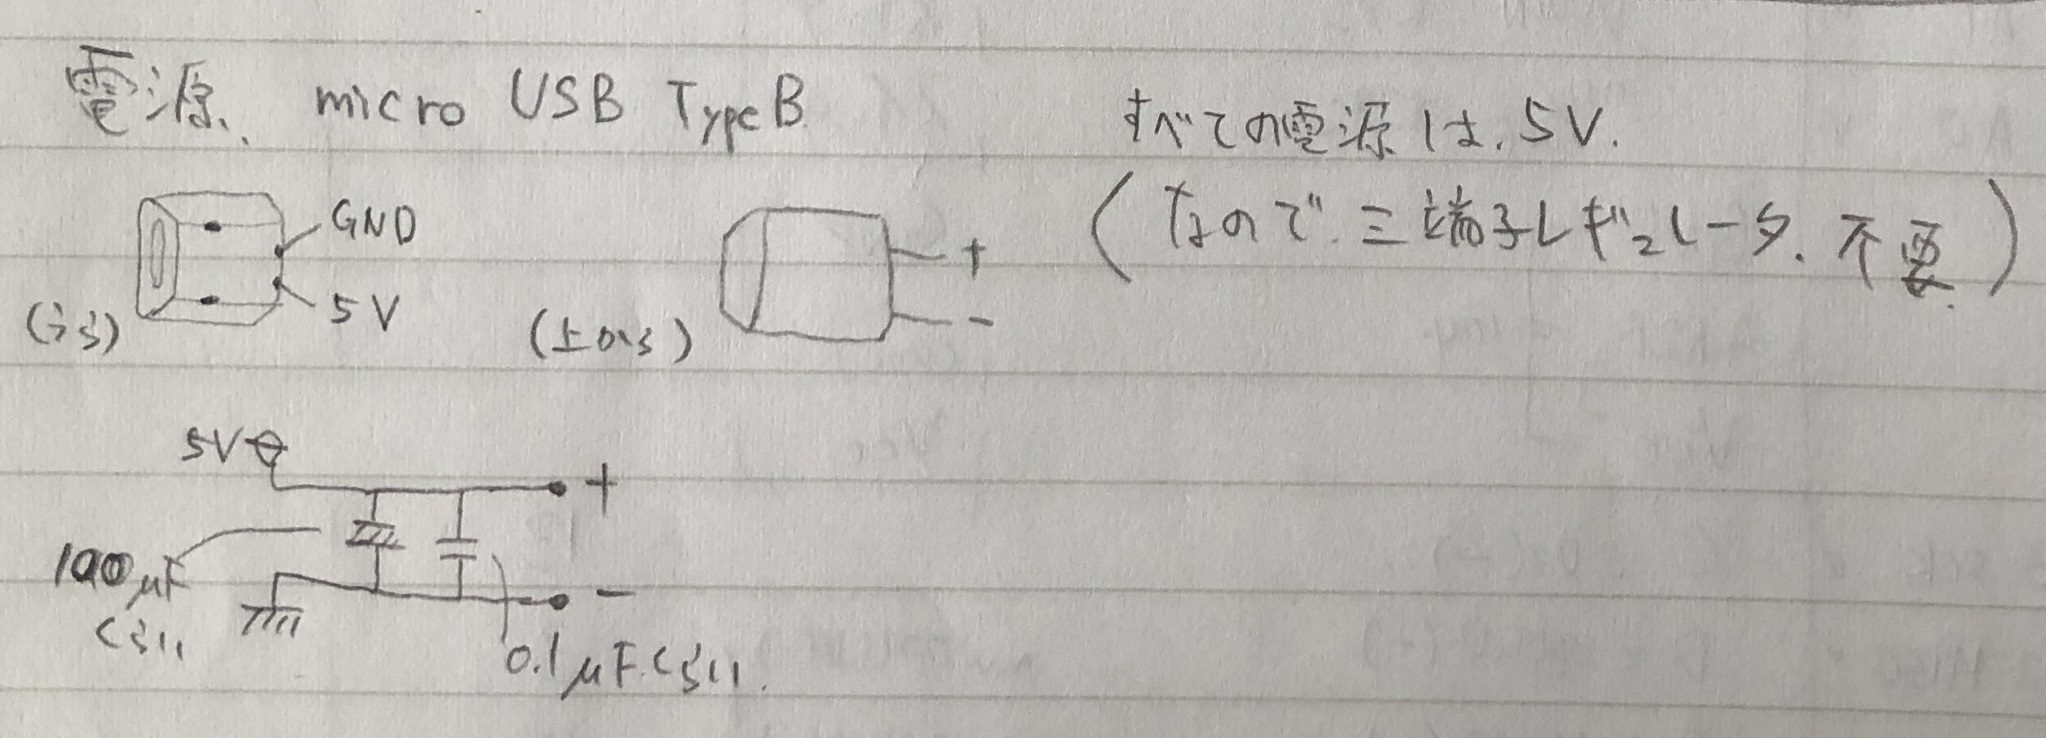 電源、 micro USB TypeB
すべての電源は、5V.
(なので、三端子レギュレータ、不要)
GND
5V
(うら)
(上から)
+
-
5V
+
100μF
くらい
-
0.1μFくらい.